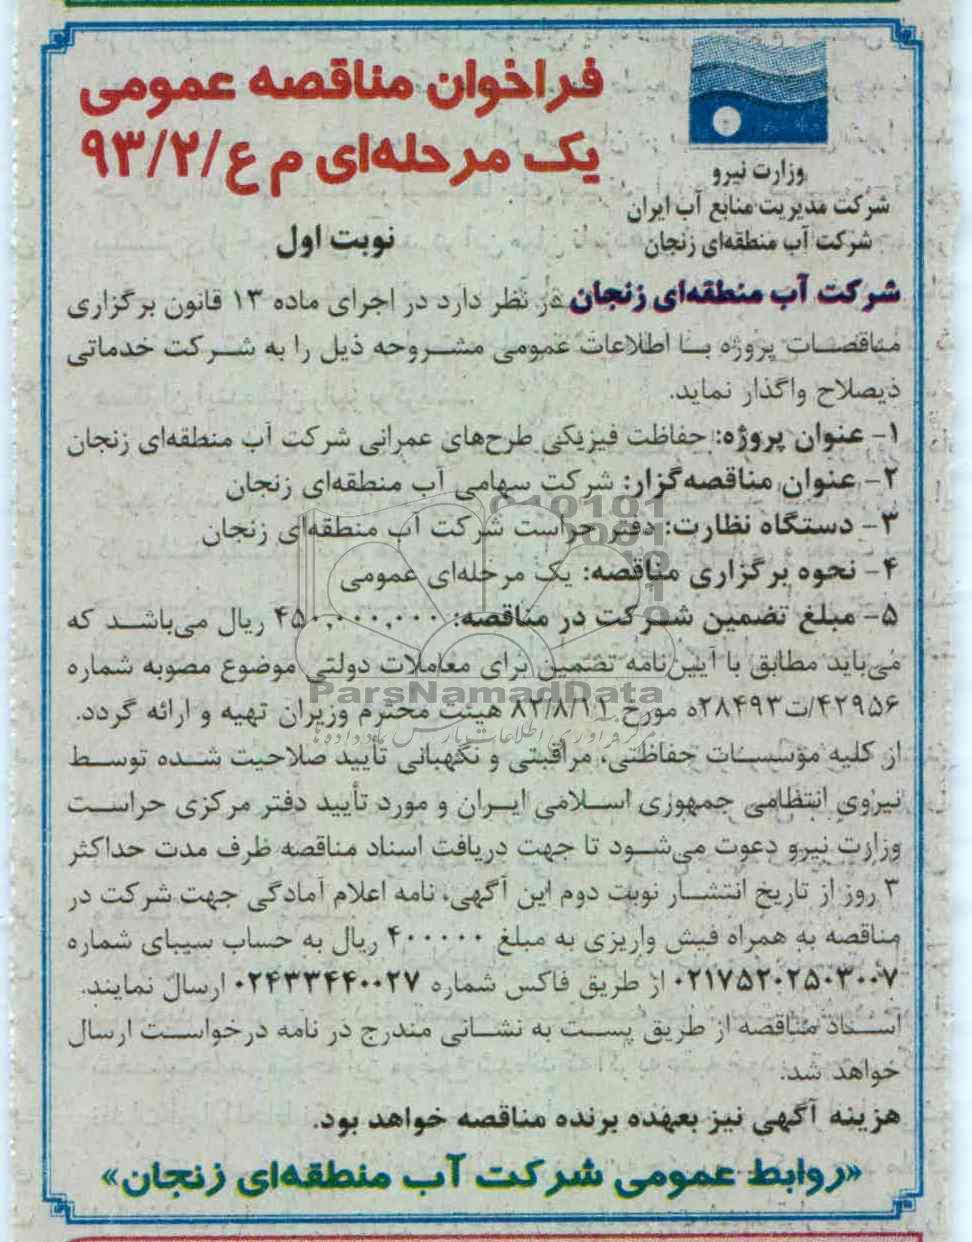 فراخوان مناقصه عمومی
یک مرحله‌ای م ع/۹۳/۲
وزارت نیرو
شرکت مدیریت منابع آب ایران
شرکت آب منطقه‌ای زنجان
نوبت اول
شرکت آب منطقه‌ای زنجان در نظر دارد در اجرای ماده ۱۳ قانون برگزاری
مناقصات پروژه با اطلاعات عمومی مشروحه ذیل را به شرکت خدماتی
ذیصلاح واگذار نماید.
۱- عنوان پروژه: حفاظت فیزیکی طرح‌های عمرانی شرکت آب منطقه‌ای زنجان
۲- عنوان مناقصه‌گزار: شرکت سهامی آب منطقه‌ای زنجان
۳- دستگاه نظارت: دفتر حراست شرکت آب منطقه‌ای زنجان
۴- نحوه برگزاری مناقصه: یک مرحله‌ای عمومی
۵- مبلغ تضمین شرکت در مناقصه: ۴۵۰,۰۰۰,۰۰۰ ریال می‌باشد که
می‌باید مطابق با آیین‌نامه تضمین برای معاملات دولتی موضوع مصوبه شماره
۴۲۹۵۶/ت۲۸۴۹۳ه مورخ ۸۲/۸/۱۱ هیئت محترم وزیران تهیه و ارائه گردد.
از کلیه مؤسسات حفاظتی، مراقبتی و نگهبانی تأیید صلاحیت شده توسط
نیروی انتظامی جمهوری اسلامی ایران و مورد تأیید دفتر مرکزی حراست
وزارت نیرو دعوت می‌شود تا جهت دریافت اسناد مناقصه ظرف مدت حداکثر
۳ روز از تاریخ انتشار نوبت دوم این آگهی، نامه اعلام آمادگی جهت شرکت در
مناقصه به همراه فیش واریزی به مبلغ ۴۰۰۰۰۰ ریال به حساب سیبای شماره
۰۲۱۷۵۲۰۲۵۰۳۰۰۷ از طریق فاکس شماره ۰۲۴۳۳۴۴۰۰۲۷ ارسال نمایند.
اسناد مناقصه از طریق پست به نشانی مندرج در نامه درخواست ارسال
خواهد شد.
هزینه آگهی نیز بعهده برنده مناقصه خواهد بود.
«روابط عمومی شرکت آب منطقه‌ای زنجان»
ParsNamadData